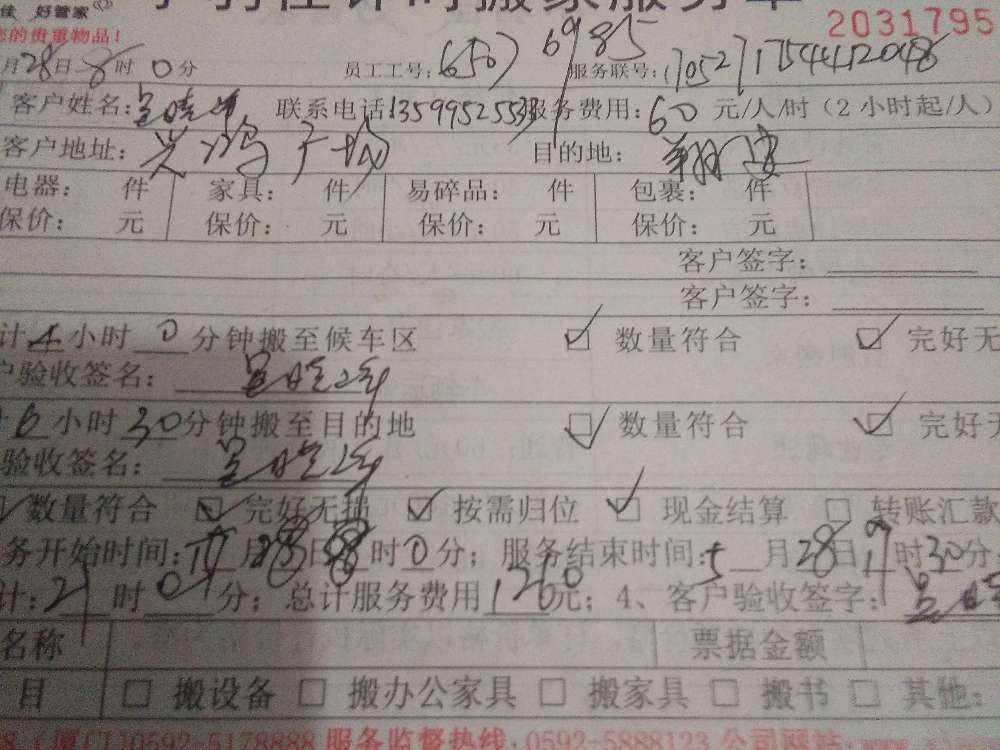 佳 好管家
计时搬家服务单
2031795
您的贵重物品!
月28日8时0分 员工工号: 服务联号:
客户姓名: 联系电话13599525538服务费用:60元/人/时(2小时起/人)
客户地址: 广场 目的地:
电器: 件 家具: 件 易碎品: 件 包裹: 件
保价: 元 保价: 元 保价: 元 保价: 元
客户签字:
客户签字:
计4小时0分钟搬至候车区 ☑ 数量符合 ☑ 完好无
户验收签名:
6小时30分钟搬至目的地 ☑ 数量符合 ☑ 完好无
验收签名:
☑ 数量符合 ☑ 完好无损 ☑ 按需归位 ☑ 现金结算 □ 转账汇款
务开始时间: 月28日8时0分; 服务结束时间:5月28日 时30分
计:21时0分; 总计服务费用1260元; 4、客户验收签字:
名称 票据金额
目 □ 搬设备 □ 搬办公家具 □ 搬家具 □ 搬书 □ 其他:
(厦门)0592-5178888 服务监督热线:0592-5888123 公司网站: